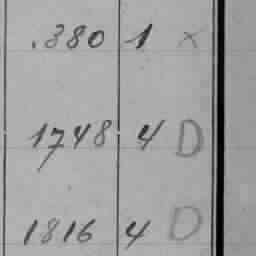 .380 1 x
1748 4 D
1816 4 D